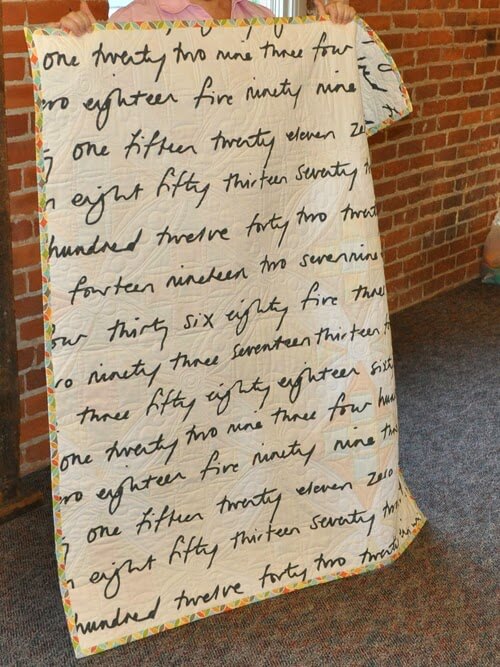 one twenty two nine three four
ro eighteen five ninety nine
one fifteen twenty eleven ze
n eight fifty thirteen seventy
hundred twelve forty two twent
fourteen nineteen two seven nine
our thirty six eighty five three
ro ninety three seventeen thirteen
three fifty eighty eighteen sixt
one twenty two nine three four hun
ro eighteen five ninety nine th
one fifteen twenty eleven zero
n eight fifty thirteen seventy
hundred twelve forty two twent